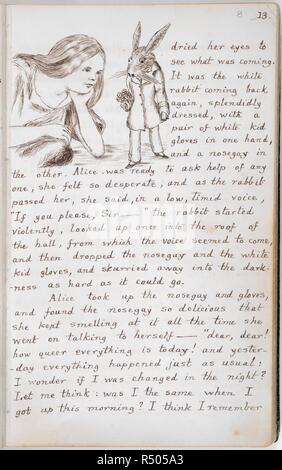 8 13.
dried her eyes to
see what was coming.
It was the white
rabbit coming back
again, splendidly
dressed, with a
pair of white kid
gloves in one hand,
and a nosegay in
the other. Alice was ready to ask help of any
one, she felt so desperate, and as the rabbit
passed her, she said, in a low, timid voice,
"If you please, Sir—" the rabbit started
violently, looked up once into the roof of
the hall, from which the voice seemed to come,
and then dropped the nosegay and the white
kid gloves, and skurried away into the dark-
-ness as hard as it could go.
Alice took up the nosegay and gloves,
and found the nosegay so delicious that
she kept smelling at it all the time she
went on talking to herself— "dear, dear!
how queer everything is today! and yester-
-day everything happened just as usual:
I wonder if I was changed in the night?
Let me think: was I the same when I
got up this morning? I think I remember
alamy
Image ID: R505A3
www.alamy.com